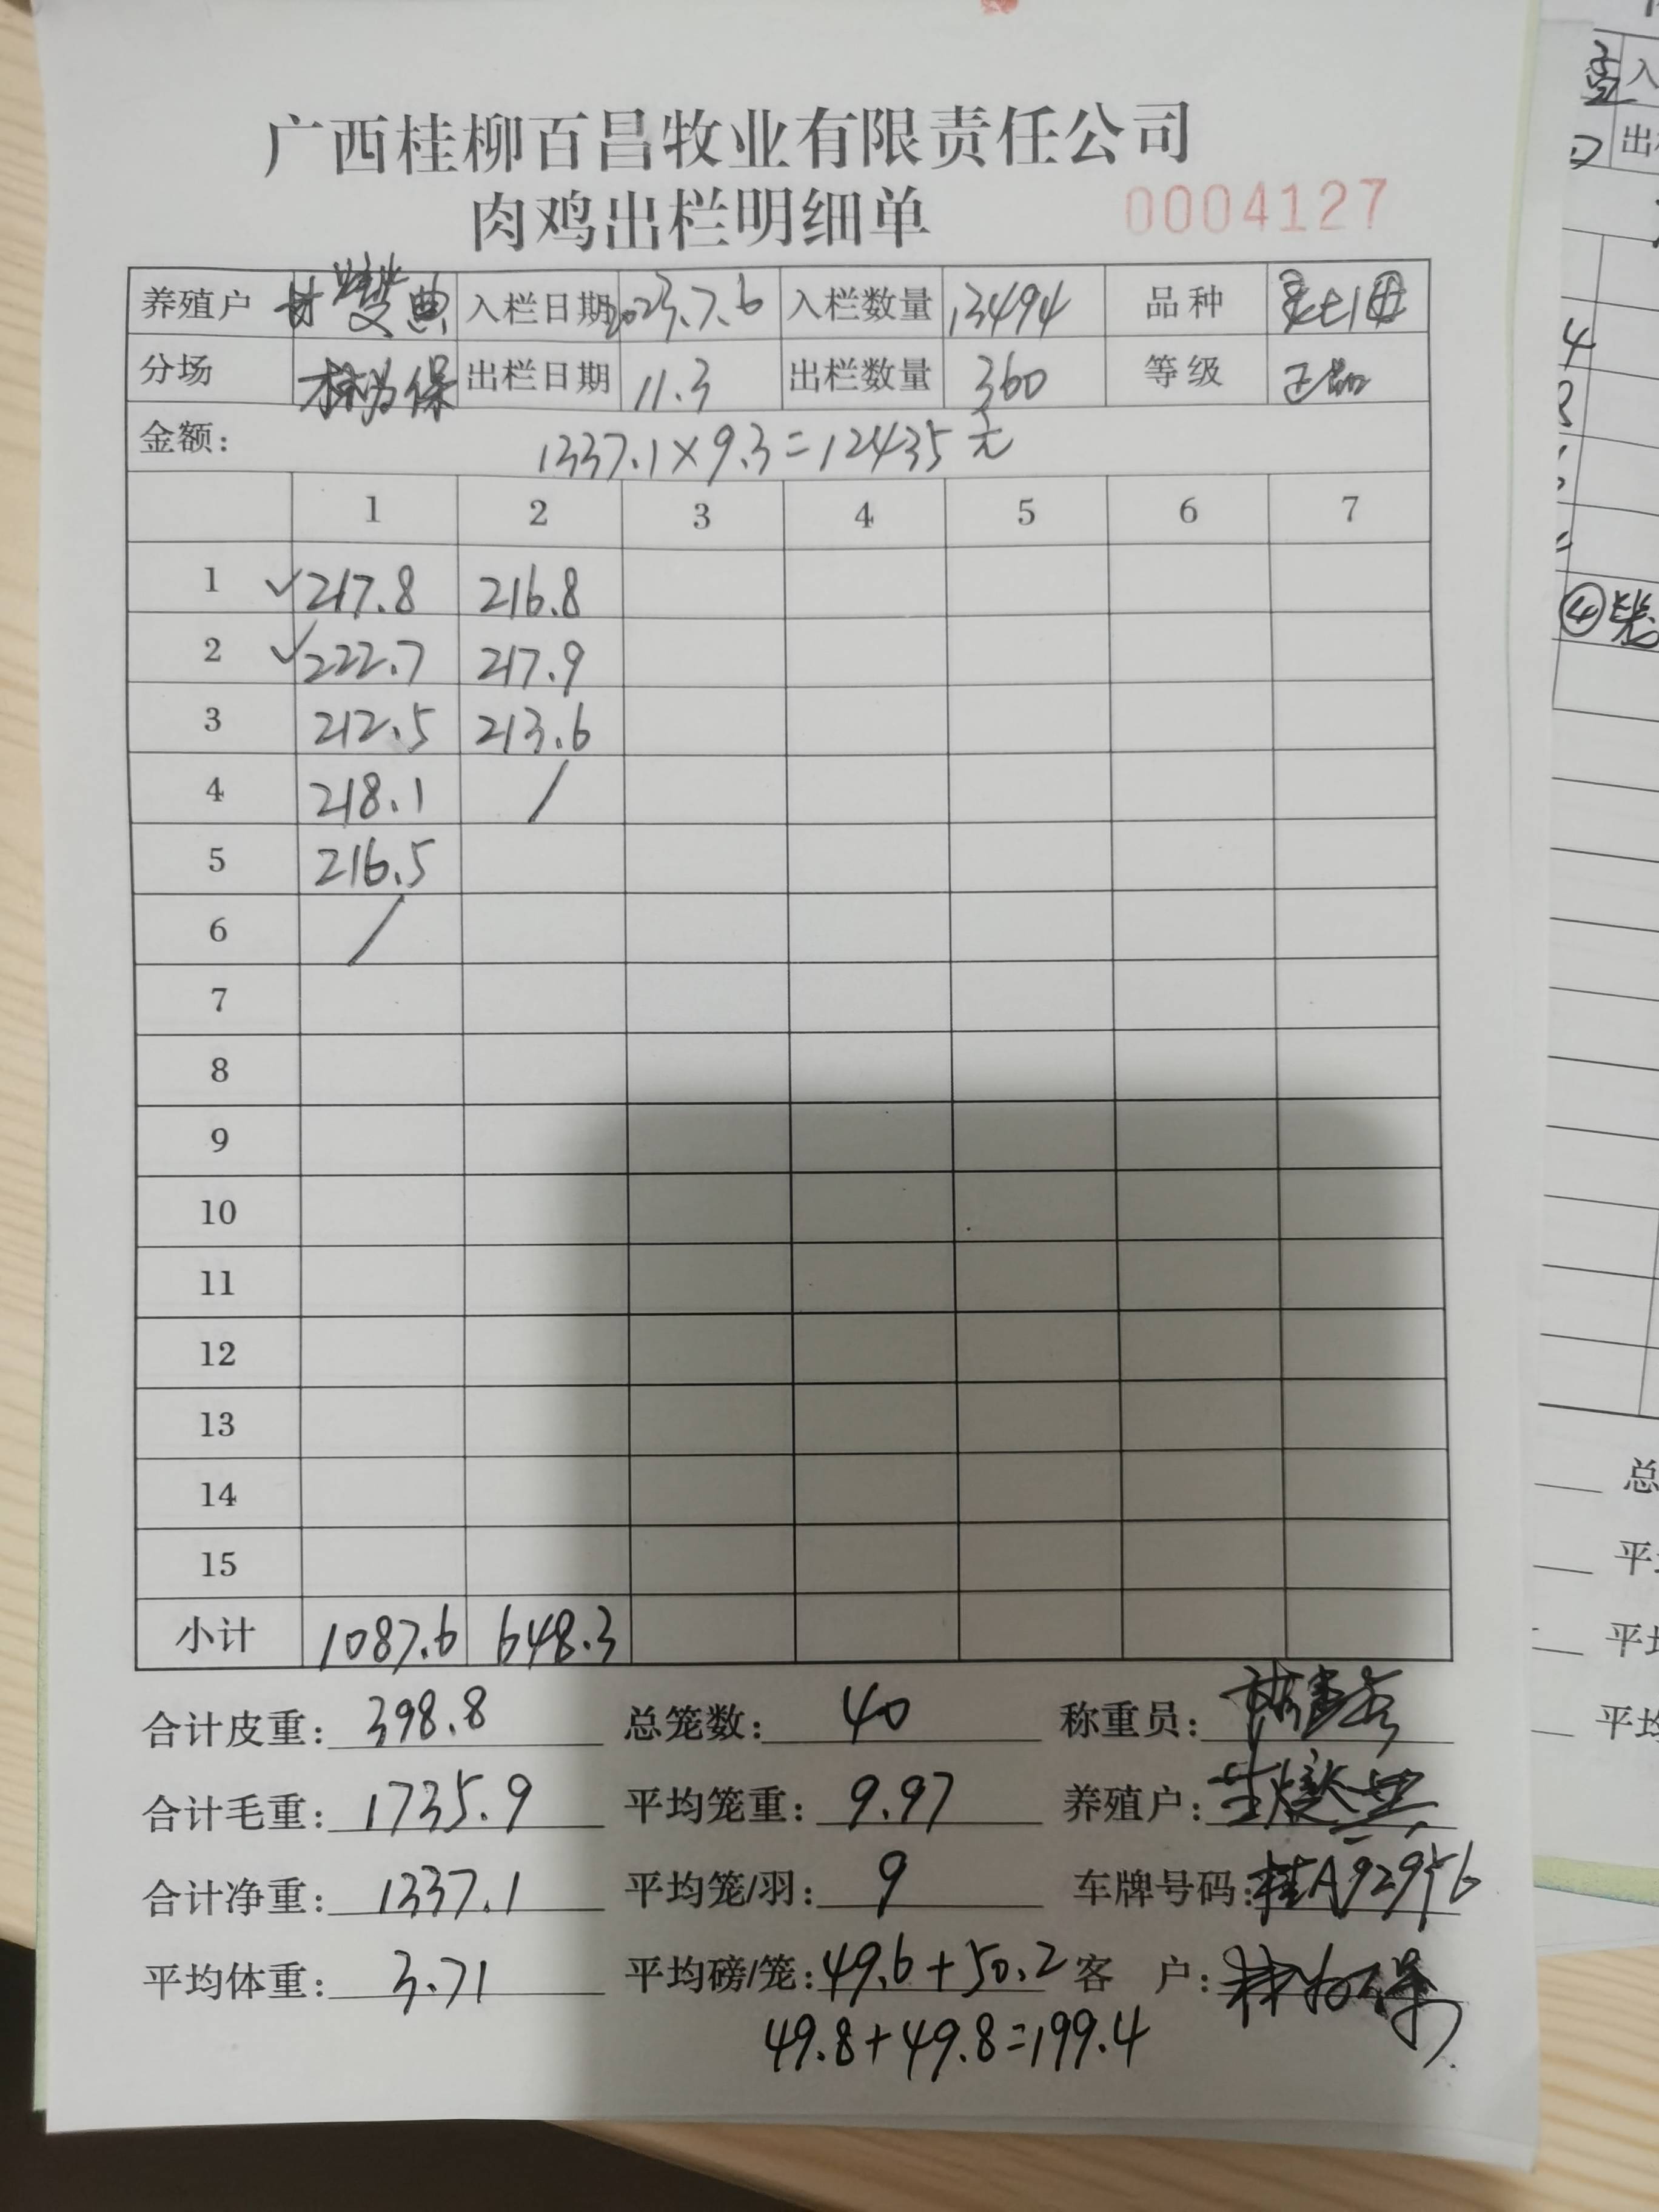 广西桂柳百昌牧业有限责任公司
肉鸡出栏明细单 0004127
养殖户 入栏日期 2023.7.6 入栏数量 13494 品种
分场 出栏日期 11.3 出栏数量 360 等级 正品
金额: 1337.1×9.3=12435元
1 2 3 4 5 6 7
1 ✓217.8 216.8
2 ✓222.7 217.9
3 212.5 213.6
4 218.1 /
5 216.5
6 /
7
8
9
10
11
12
13
14
15
小计 1087.6 648.3
合计皮重: 398.8 总笼数: 40 称重员:
合计毛重: 1735.9 平均笼重: 9.97 养殖户:
合计净重: 1337.1 平均笼/羽: 9 车牌号码: 桂A92956
平均体重: 3.71 平均磅/笼: 49.6+50.2 客 户:
49.8+49.8=199.4